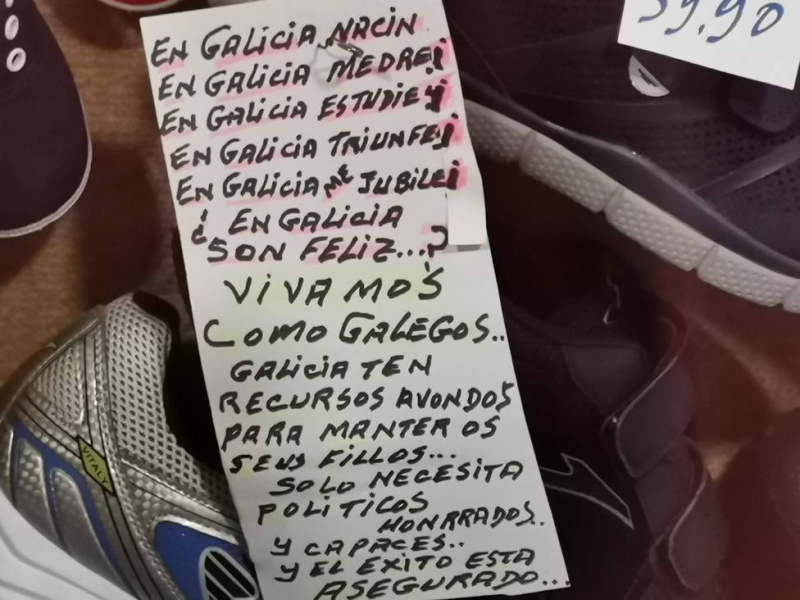 39.90
EN GALICIA NACIN
EN GALICIA MEDREI
EN GALICIA ESTUDIEI
EN GALICIA TRIUNFEI
EN GALICIA ME JUBILEI
¿ EN GALICIA
SON FELIZ...?
VIVAMOS
COMO GALEGOS..
GALICIA TEN
RECURSOS AVONDOS
PARA MANTER OS
SEUS FILLOS...
SOLO NECESITA
POLITICOS
HONRRADOS..
Y CAPACES..
Y EL EXITO ESTA
ASEGURADO...
VITALY